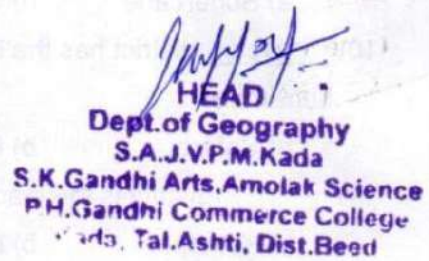 HEAD
Dept.of Geography
S.A.J.V.P.M.Kada
S.K.Gandhi Arts,Amolak Science
P.H.Gandhi Commerce College
Tal.Ashti, Dist.Beed